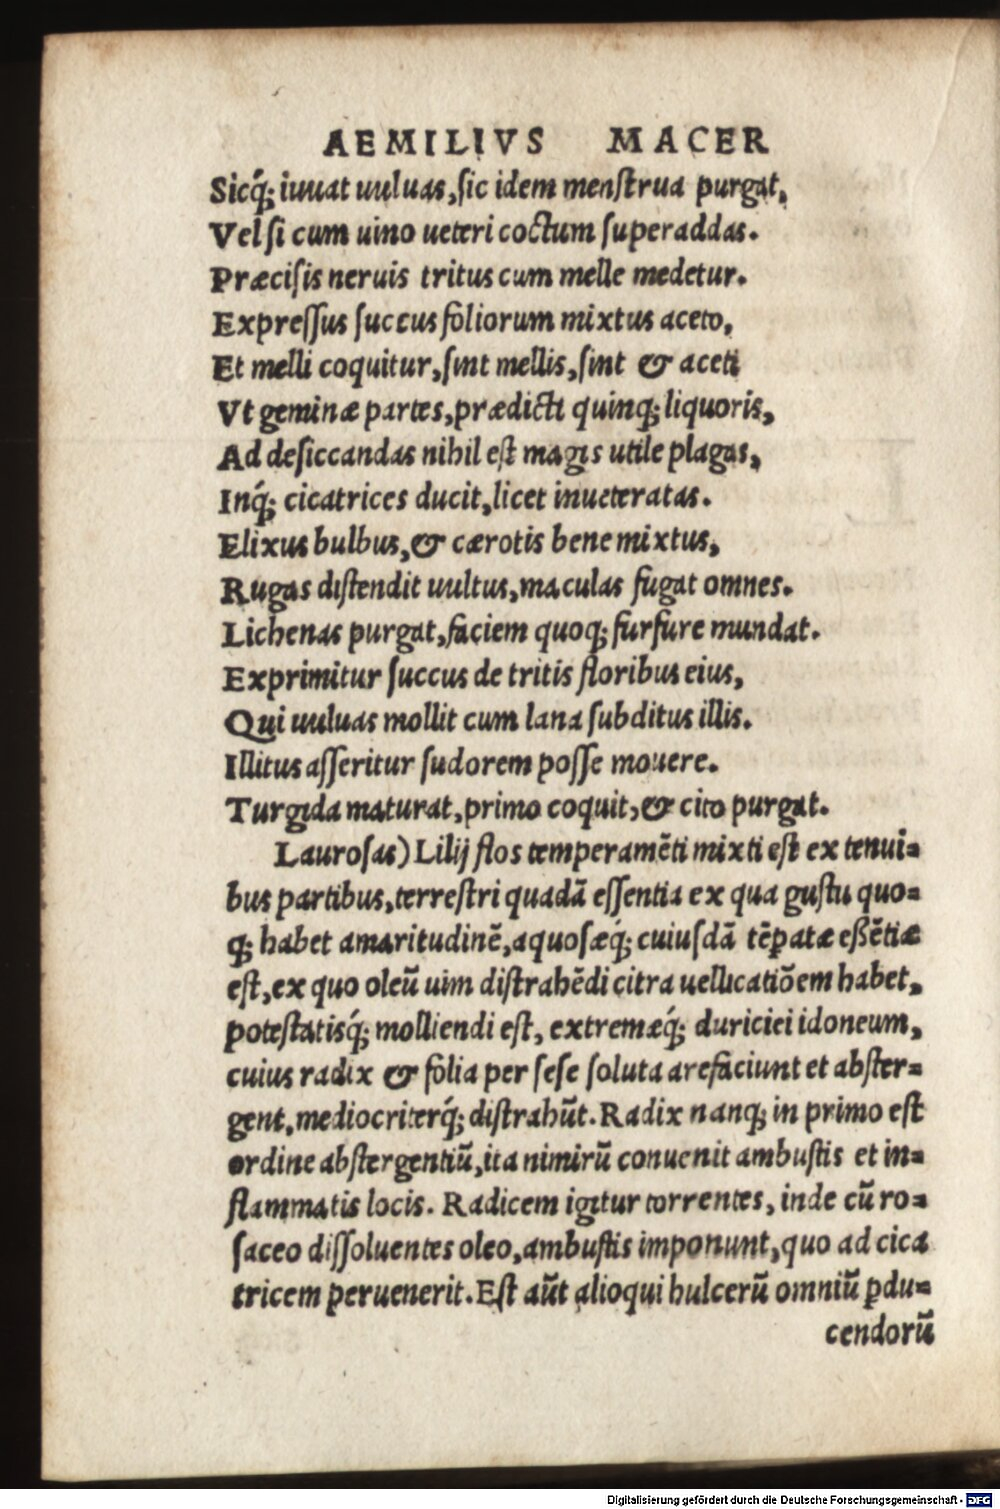 AEMILIVS MACER
Sicq́; iuuat uuluas, sic idem menstrua purgat,
Vel si cum uino ueteri coctum superaddas.
Præcisis neruis tritus cum melle medetur.
Expressus succus foliorum mixtus aceto,
Et melli coquitur, sint mellis, sint & aceti
Vt geminæ partes, prædicti quinq; liquoris,
Ad desiccandas nihil est magis utile plagas,
Inq́; cicatrices ducit, licet inueteratas.
Elixus bulbus, & cærotis bene mixtus,
Rugas distendit uultus, maculas fugat omnes.
Lichenas purgat, faciem quoq; furfure mundat.
Exprimitur succus de tritis floribus eius,
Qui uuluas mollit cum lana subditus illis.
Illitus asseritur sudorem posse mouere.
Turgida maturat, primo coquit, & cito purgat.
Laurosas) Lilij flos temperamẽti mixti est ex tenui-
bus partibus, terrestri quadã essentia ex qua gustu quo-
q; habet amaritudinẽ, aquosæq́; cuiusdã tẽp̱atæ eßẽtiæ
est, ex quo oleũ uim distrahẽdi citra uellicatiõem habet,
potestatisq́; molliendi est, extremæq́; duriciei idoneum,
cuius radix & folia per sese soluta arefaciunt et abster-
gent, mediocriterq́; distrahũt. Radix nanq; in primo est
ordine abstergentiũ, ita nimirũ conuenit ambustis et in-
flammatis locis. Radicem igitur torrentes, inde cũ ro-
saceo dissoluentes oleo, ambustis imponunt, quo ad cica
tricem peruenerit. Est aũt alioqui hulcerũ omniũ ꝑdu-
cendorũ
Digitalisierung gefördert durch die Deutsche Forschungsgemeinschaft - DFG